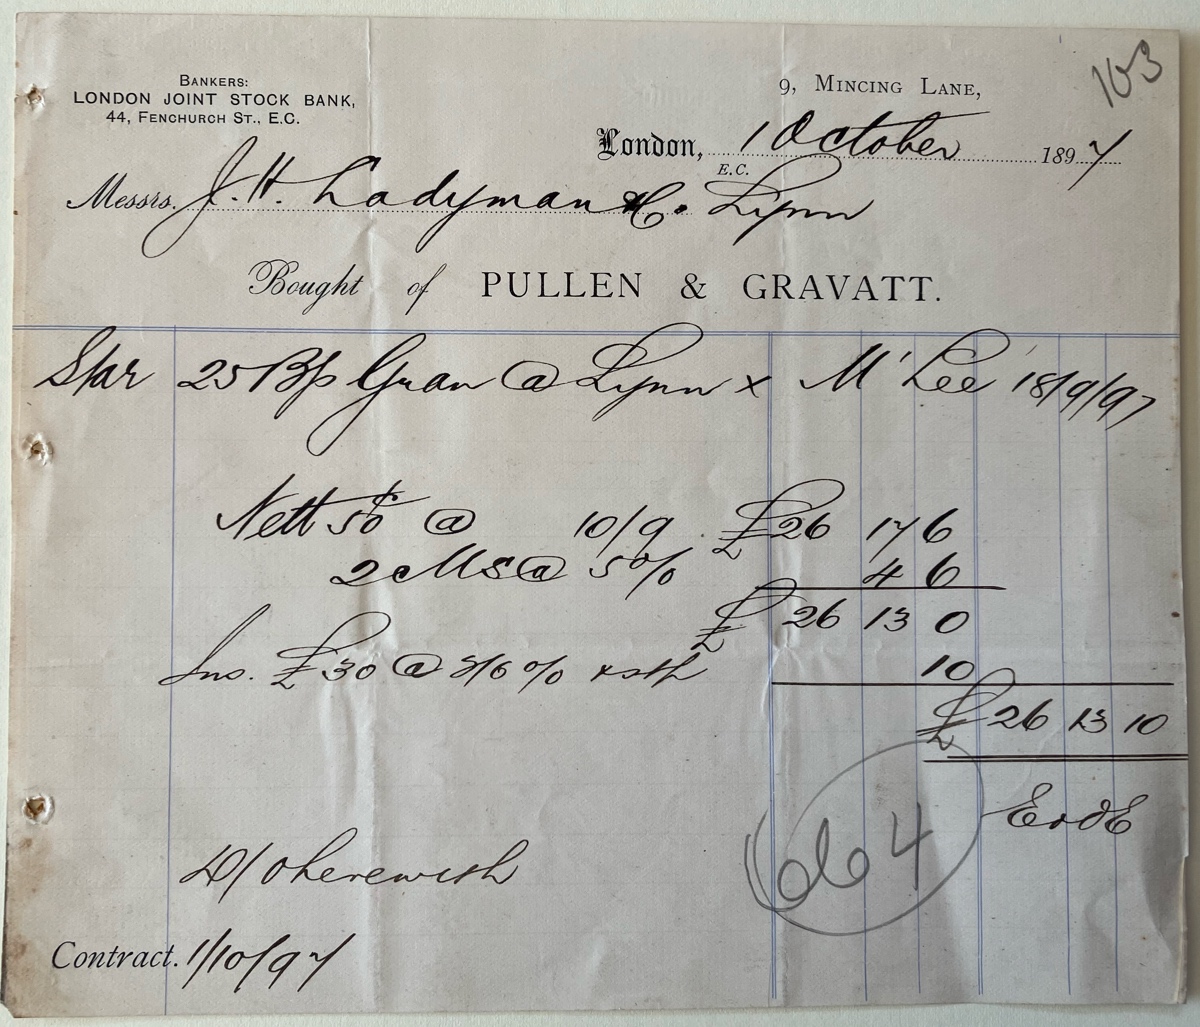 BANKERS:
LONDON JOINT STOCK BANK,
44, FENCHURCH ST., E.C.
103
9, MINCING LANE,
London, 1 October 1897
E.C.
Messrs. J. H. Ladyman & Co. Lynn
Bought of PULLEN & GRAVATT.
Star 25 B/s Gran @ Lynn x McLee 18/9/97
Nett 50 @ 10/9 £26 17 6
2 Ms @ 5% 4 6
£ 26 13 0
Ins. £30 @ % 10
£ 26 13 10
E&OE
664
D/O herewith
Contract. 1/10/97